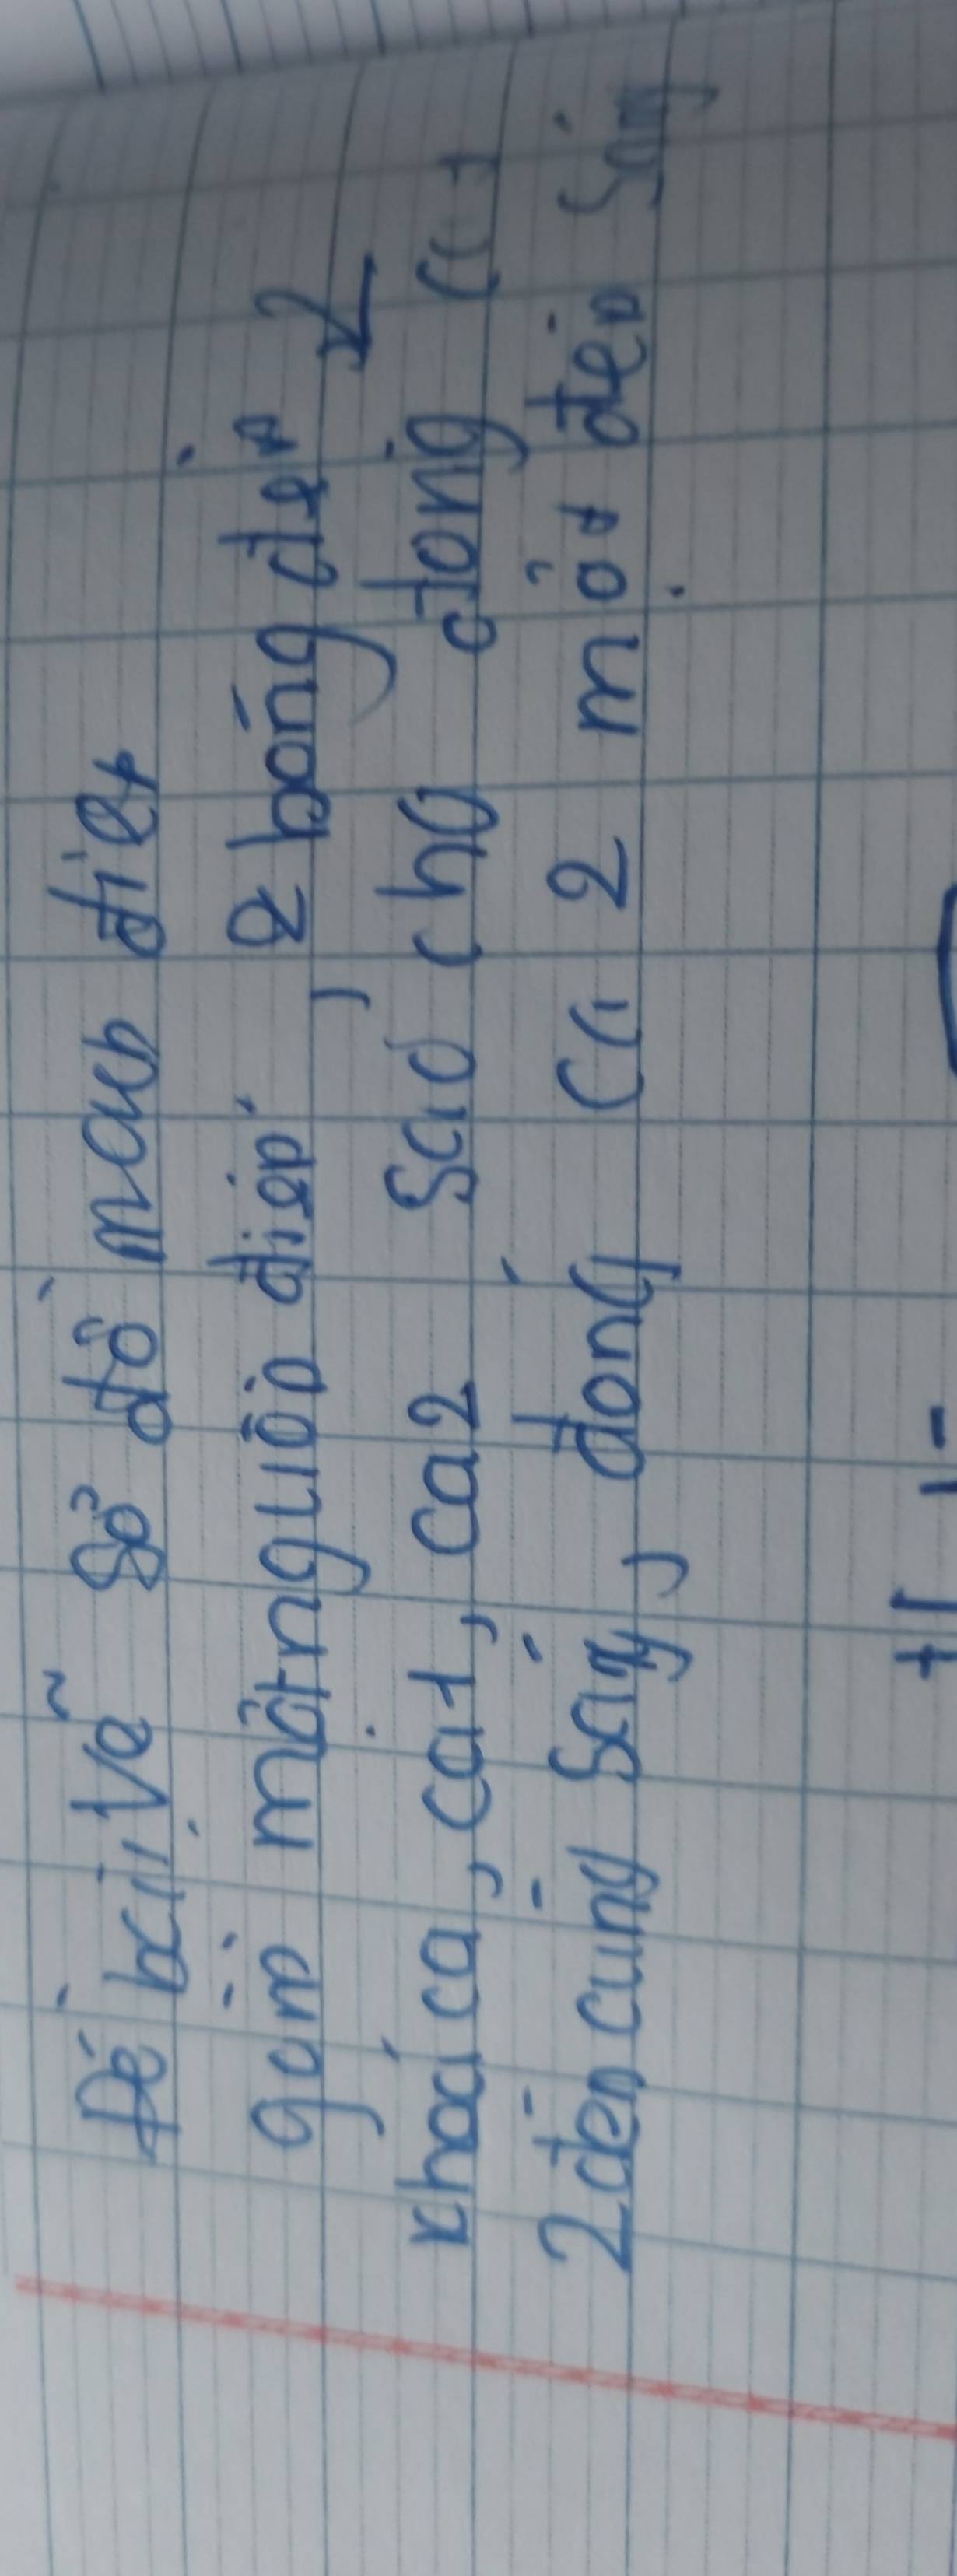 Đề bài: Vẽ sơ đồ mạch điện
gồm một nguồn điện, 2 bóng đèn, 2
khóa ca, ca1, ca2 sao cho đóng ca1
2 đèn cùng sáng, đóng ca2 một đèn sáng
+ -